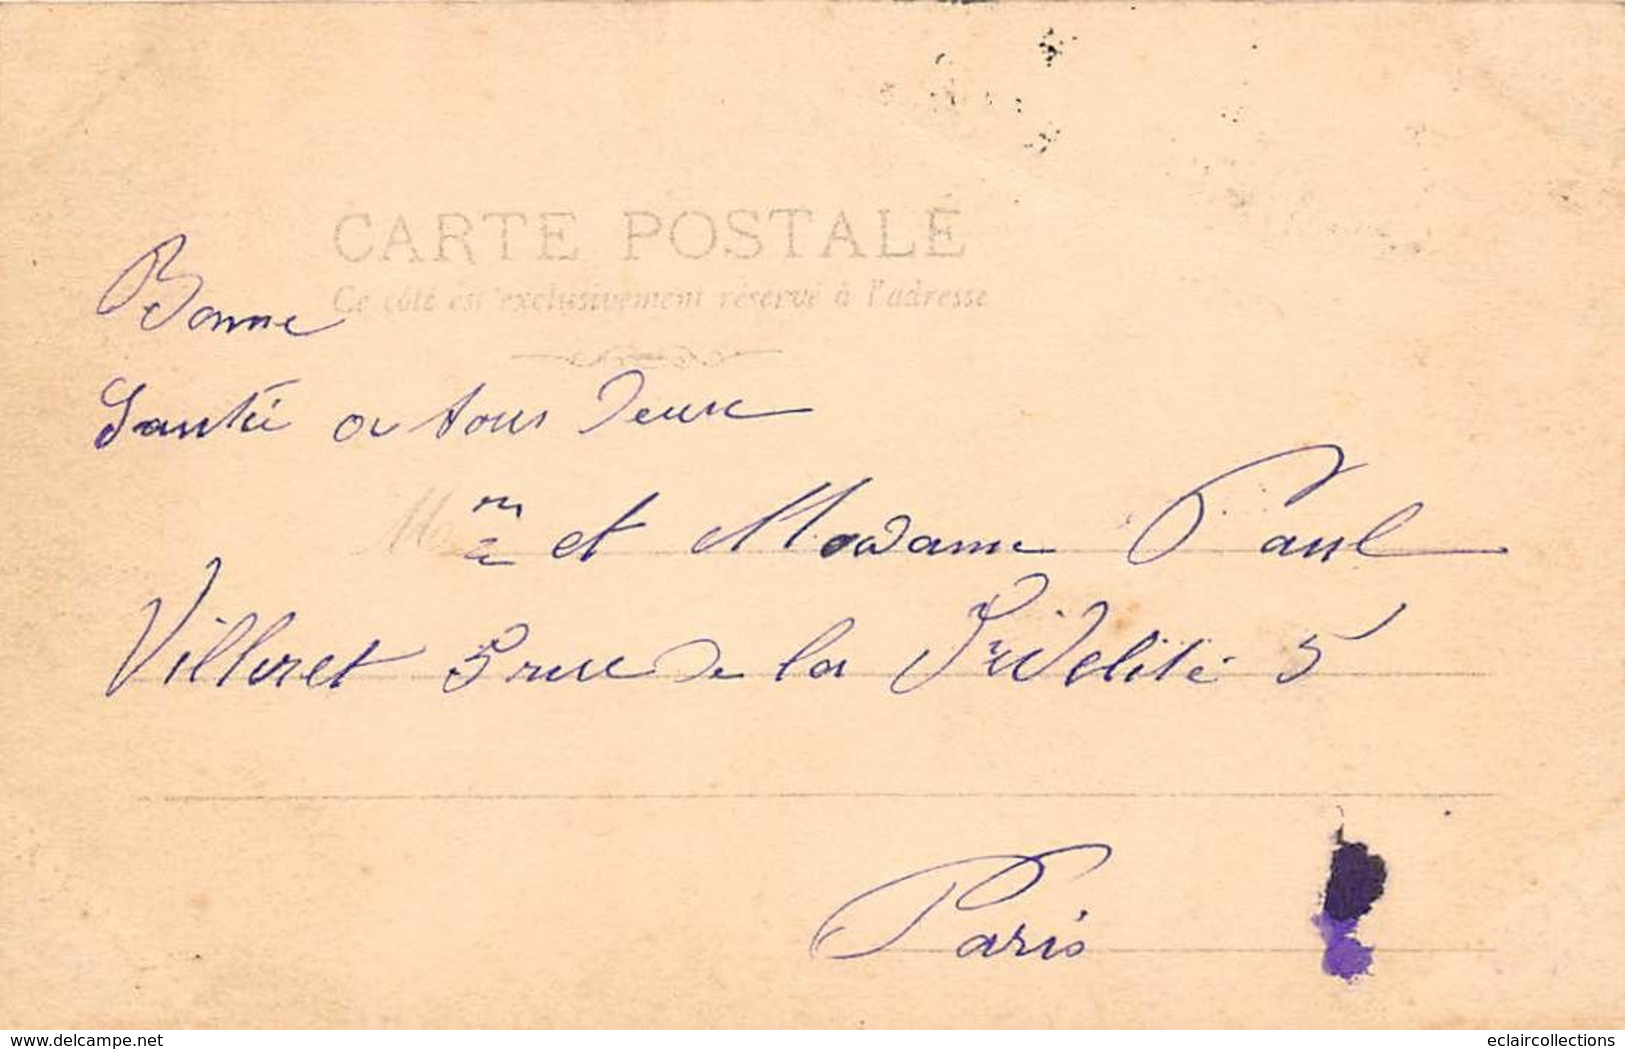 CARTE POSTALE
Ce côté est exclusivement réservé à l'adresse
Bonne
Santé a tous Deux
M et Madame Paul
Villeret 5 rue De la Fidelité 5
Paris
delcampe.net
eclaircollections